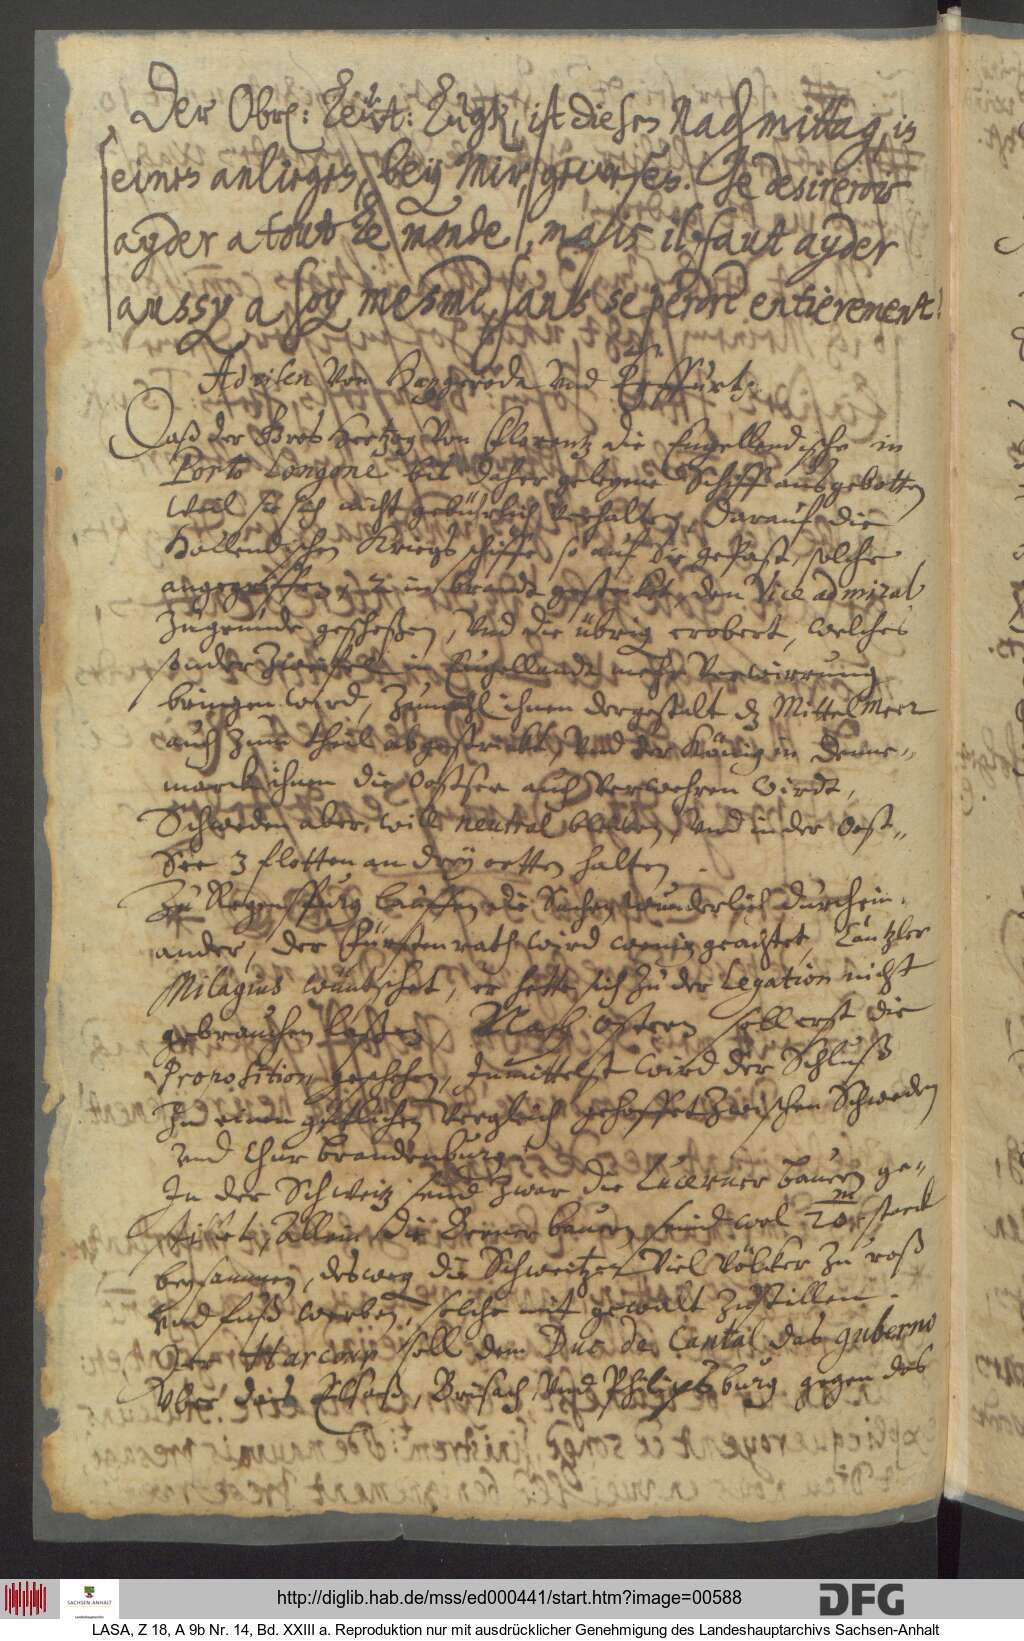 Der Obrl: Leüt: Lugk, ist diesen Nachmittag, in
eines anlieges, bey Mir, gewesen. Je desirerois
ayder a tout le monde, mais il faut ayder
aussy a soy mesme, sans se perdre entièrement!
Advisen von Hazgeroda und Erffurt:
Daß der Gros Hertzog von Florentz die Engellendische in
Porto Longone bis daher gelegene Schiff ausgebotten
weil sie sich nicht gebührlich verhalten, darauf die
Hollendischen Kriegs schiffe so auf sie gepast, solche
angegriffen, 2 in brandt gestecket, den Vice admiral
zugrunde geschoßen, und die übrig erobert, welches
sonder Zweifel in Engellandt mehr Verwirrung
bringen wird, Zumahl ihnen dergestalt dz MittelMeer
auch zum theil abgestrickt, und der König in Denne-
marck ihnen die Oostsee auch verwehren wirdt,
Schweden aber, will neutral bleiben, und in der Oost-
See 3 flotten an drey orten halten.
Zu Regenspurg lauffen die Sachen wunderlich durchein-
ander, der Fürstenrath wird wenig geachtet, Cantzler
Milagius wüntschet, er hette sich zu der Legation nicht
gebrauchen laßen, Nach Ostern soll erst die
Proposition geschehen, Inmittelst wird der Schluß
Zu einem gütlichen Vergleich gehoffet zwischen Schweden
und Chur Brandenburg.
In der Schweitz seind zwar die Lucerner bauern ge-
stillet, Allein die Berner bauern seind wol 20/m starck
beysammen, deswegen die Schweitzer Viel Völcker zu roß
und fuß werben, solche mit gewalt zustillen.
Der Harcourt soll dem Duc de Cantal das guberno
über das Elsaß, Brisach, und Philipsburg gegen das
http://diglib.hab.de/mss/ed000441/start.htm?image=00588
SACHSEN-ANHALT
DFG
LASA, Z 18, A 9b Nr. 14, Bd. XXIII a. Reproduktion nur mit ausdrücklicher Genehmigung des Landeshauptarchivs Sachsen-Anhalt